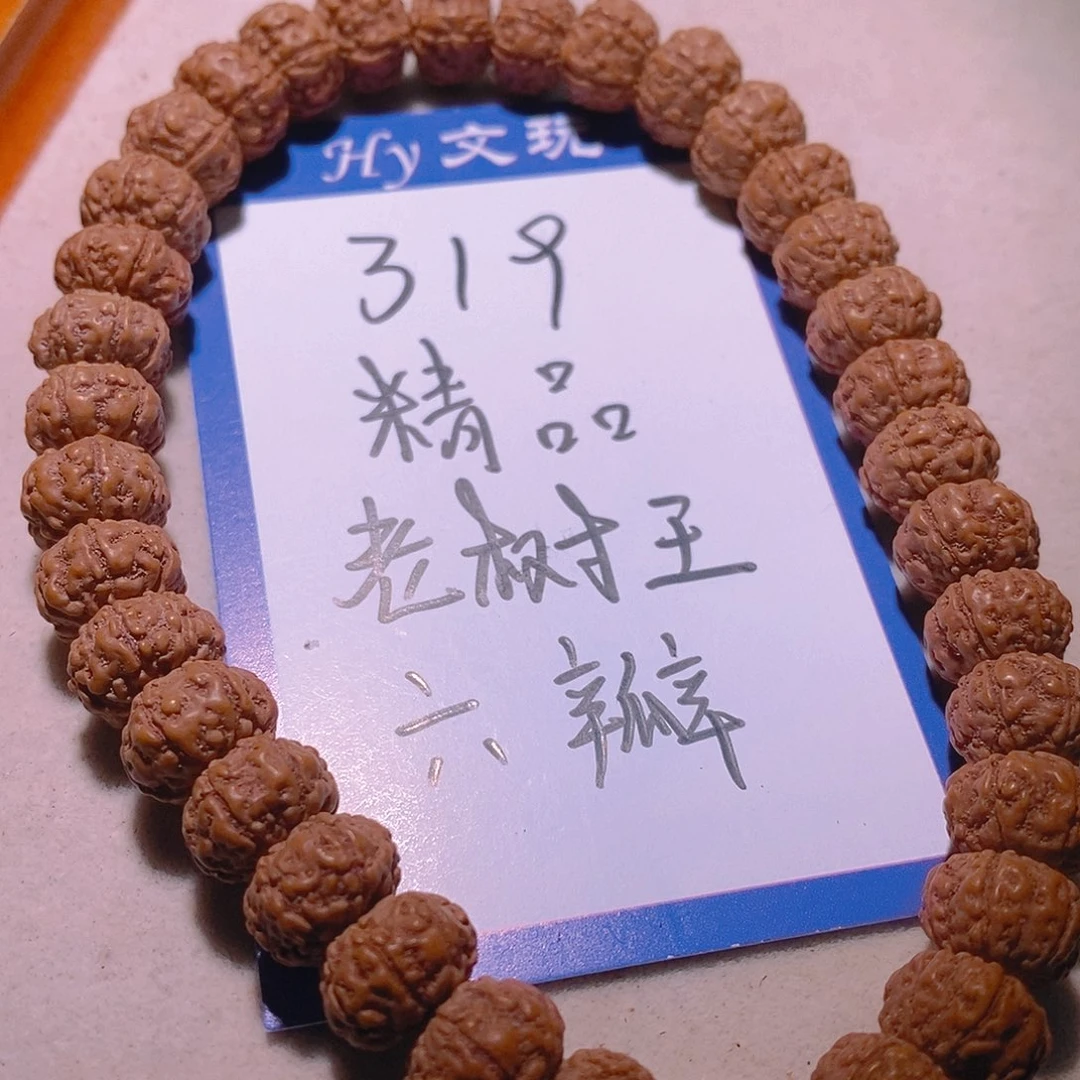 Hy 文玩
319
精品
老树王
六瓣